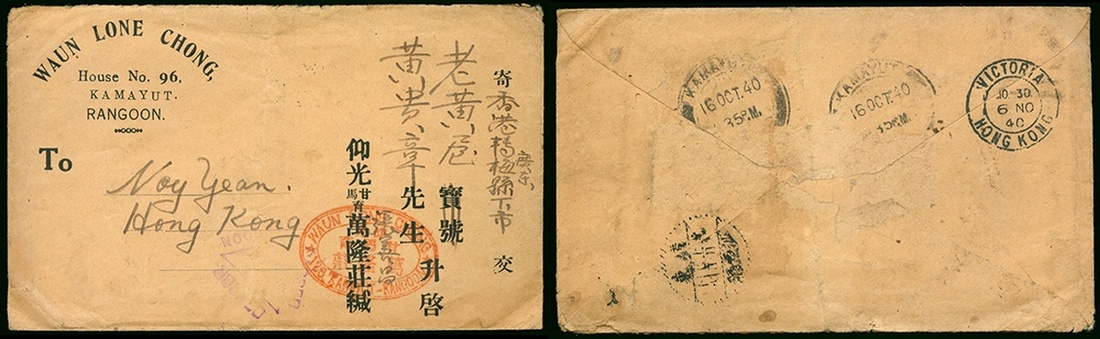 WAUN LONE CHONG,
House No. 96,
KAMAYUT.
RANGOON.
To
Noy Yean.
Hong Kong
寄香港梅縣下市交
老黃屋寶號
黃貴章先生升啓
仰光甘馬育萬隆莊緘
WAUN
RANGOON
KAMAYUT
16 OCT. 40
KAMAYUT
16 OCT. 40
VICTORIA
10.30
6 NO
40
HONG KONG